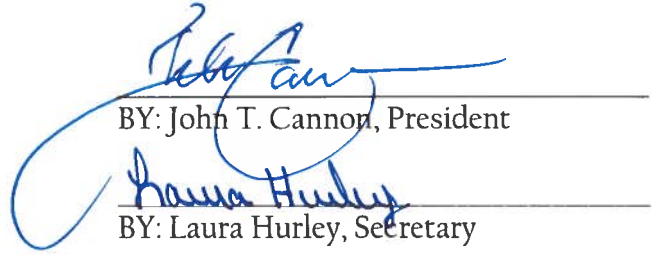 BY: John T. Cannon, President
Laura Hurley
BY: Laura Hurley, Secretary